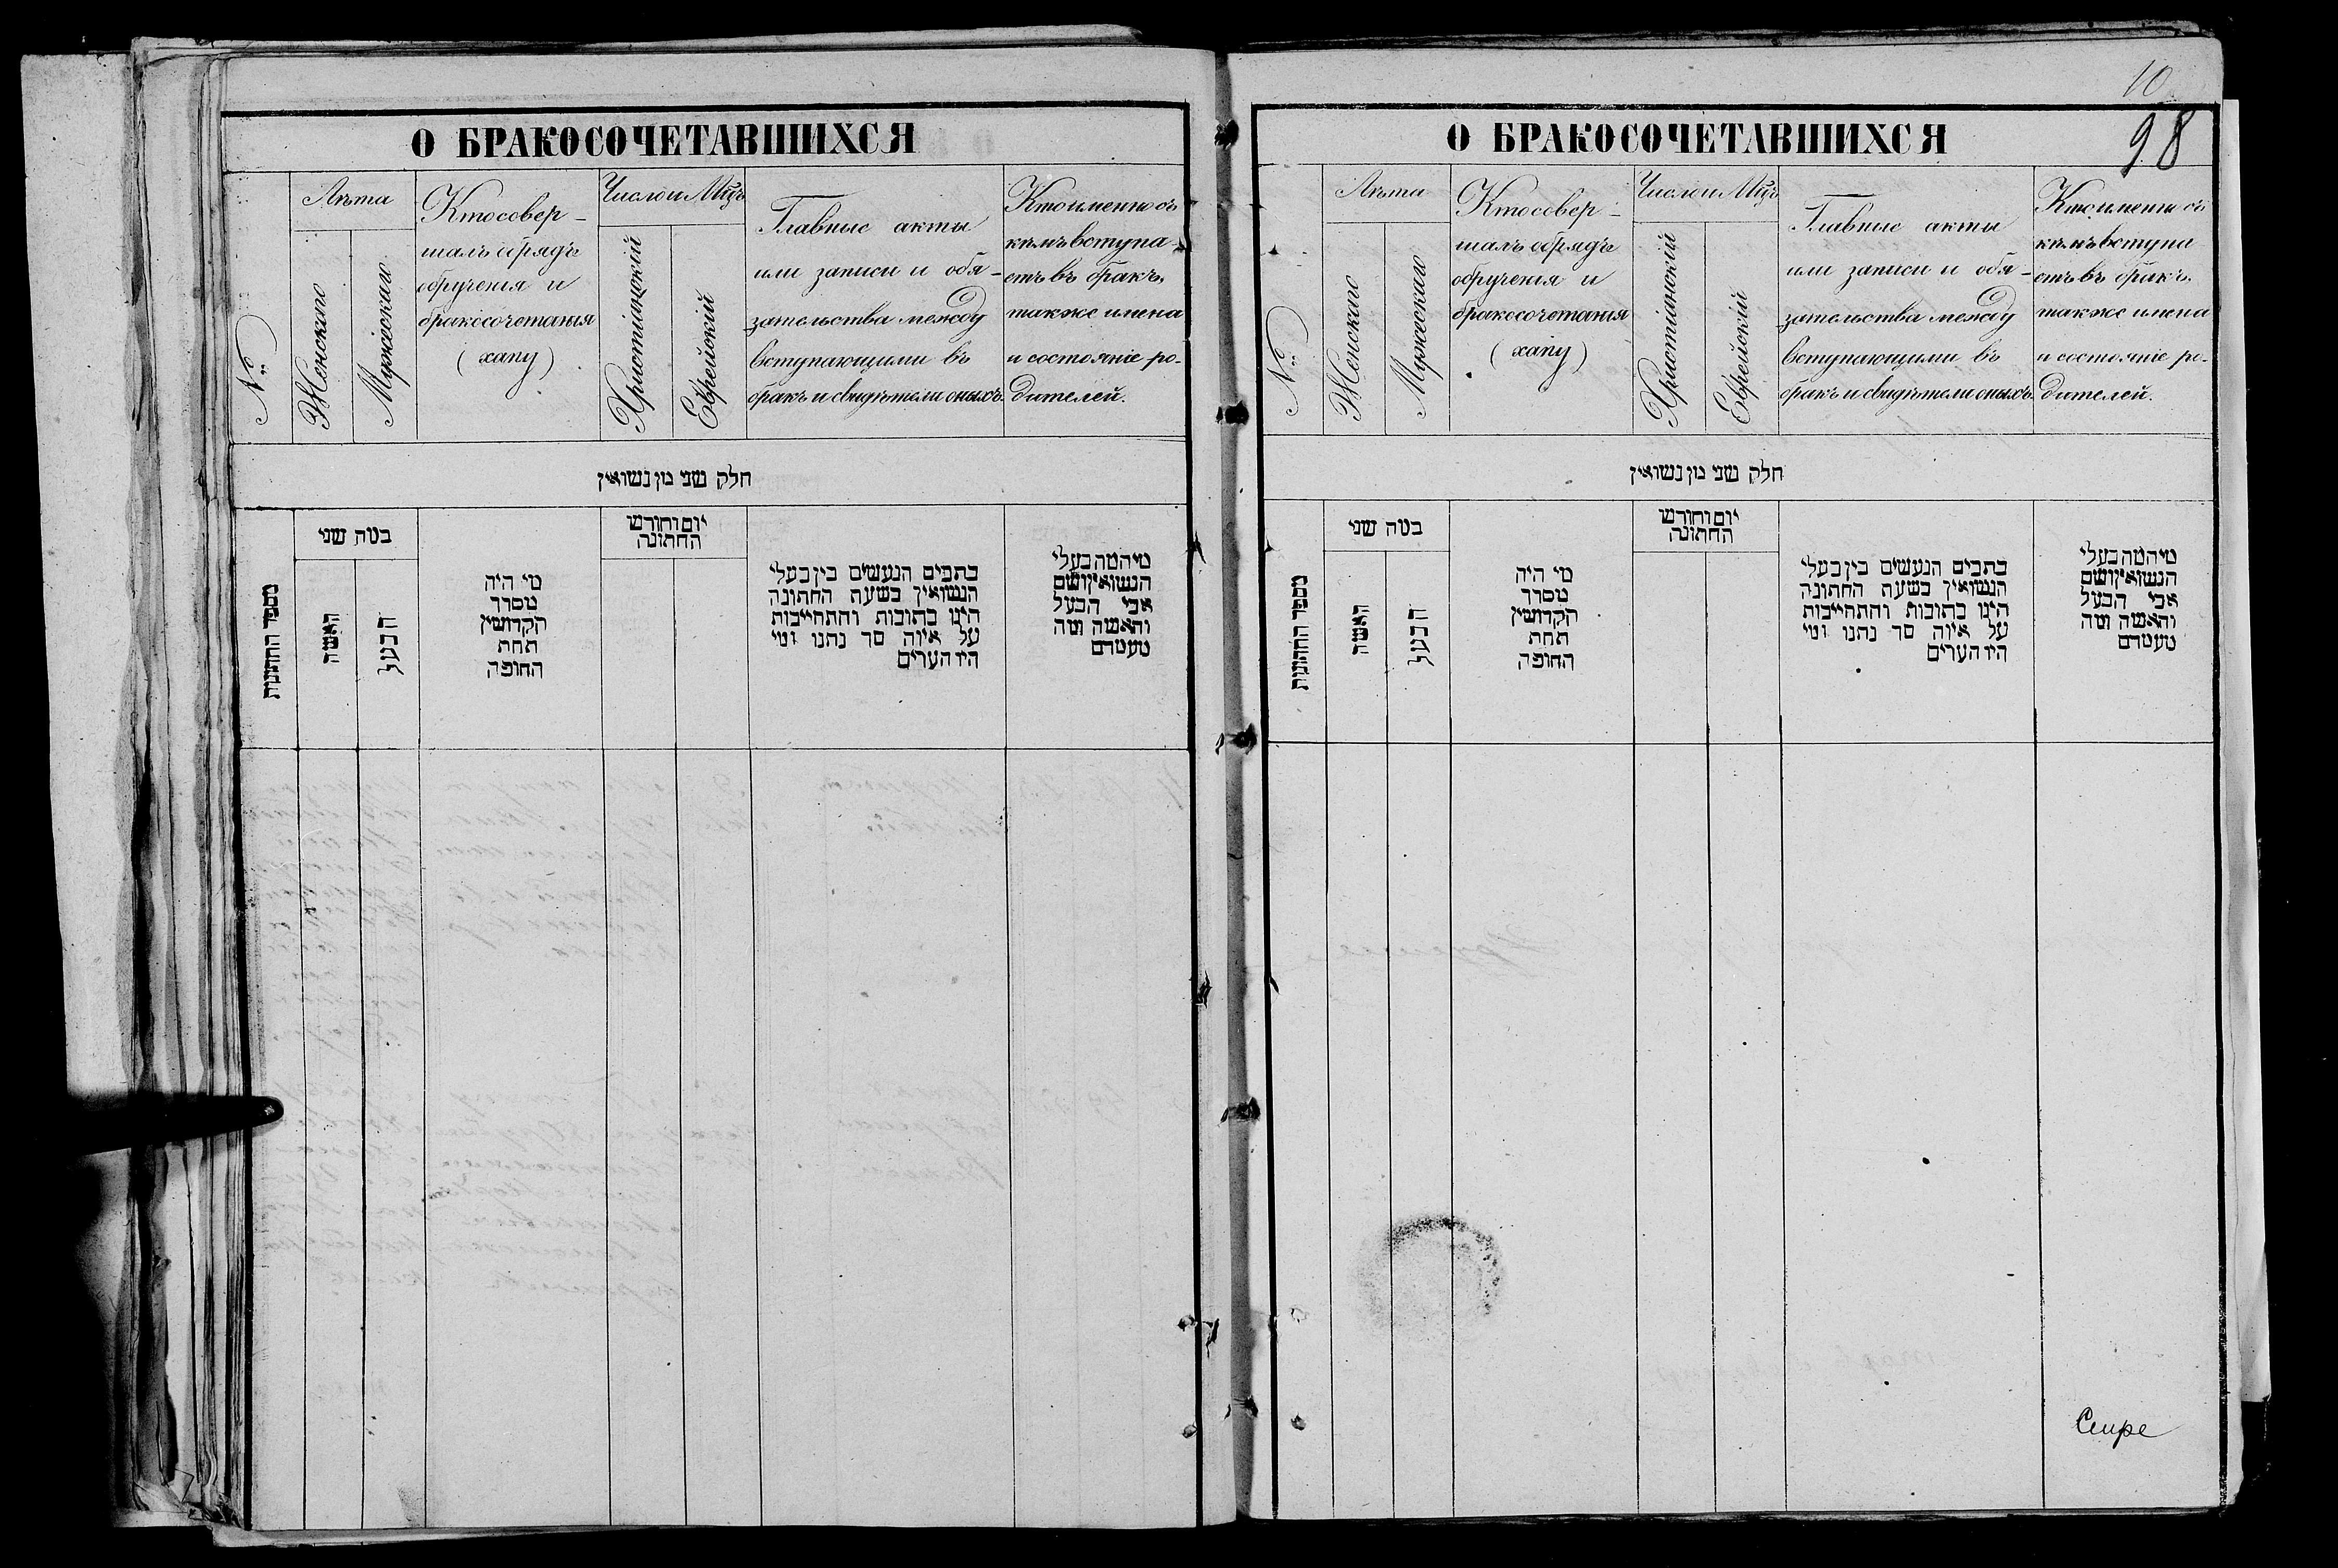 О БРАКОСОЧЕТАВШИХСЯ
№
Лѣта
Женскаго
Мужескаго
Кто совер-
шалъ обрядъ
обрученія и
бракосочетанія
(хапу)
Число и Мцъ
Христіанскій
Еврейскій
Главные акты
или записи и обя-
зательства между
вступающими въ
бракъ и свидѣтели оныхъ.
Кто именно съ
кѣмъ вступа-
етъ въ бракъ,
также имена
и состояніе ро-
дителей.
חלק שני מן נשואין
מספר החתונות
כמה שני
האשה
הבעל
מי היה
מסדר
הקדושין
תחת
החופה
יום וחודש
החתונה
כתבים הנעשים בין בעלי
הנשואין בשעת החתונה
היינו כתובות והתחייבות
על איזה סך נתנו ומי
היו העדים
מי המה בעלי
הנשואין ושם
אבי הבעל
והאשה ומה
מעמדם
10
98
О БРАКОСОЧЕТАВШИХСЯ
№
Лѣта
Женскаго
Мужескаго
Кто совер-
шалъ обрядъ
обрученія и
бракосочетанія
(хапу)
Число и Мцъ
Христіанскій
Еврейскій
Главные акты
или записи и обя-
зательства между
вступающими въ
бракъ и свидѣтели оныхъ.
Кто именно съ
кѣмъ вступа
етъ въ бракъ,
также имена
и состояніе ро-
дителей.
חלק שני מן נשואין
מספר החתונות
כמה שני
האשה
הבעל
מי היה
מסדר
הקדושין
תחת
החופה
יום וחודש
החתונה
כתבים הנעשים בין בעלי
הנשואין בשעת החתונה
היינו כתובות והתחייבות
על איזה סך נתנו ומי
היו העדים
מי המה בעלי
הנשואין ושם
אבי הבעל
והאשה ומה
מעמדם